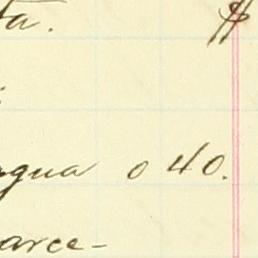 ta. $
agua 0 40.
arce-